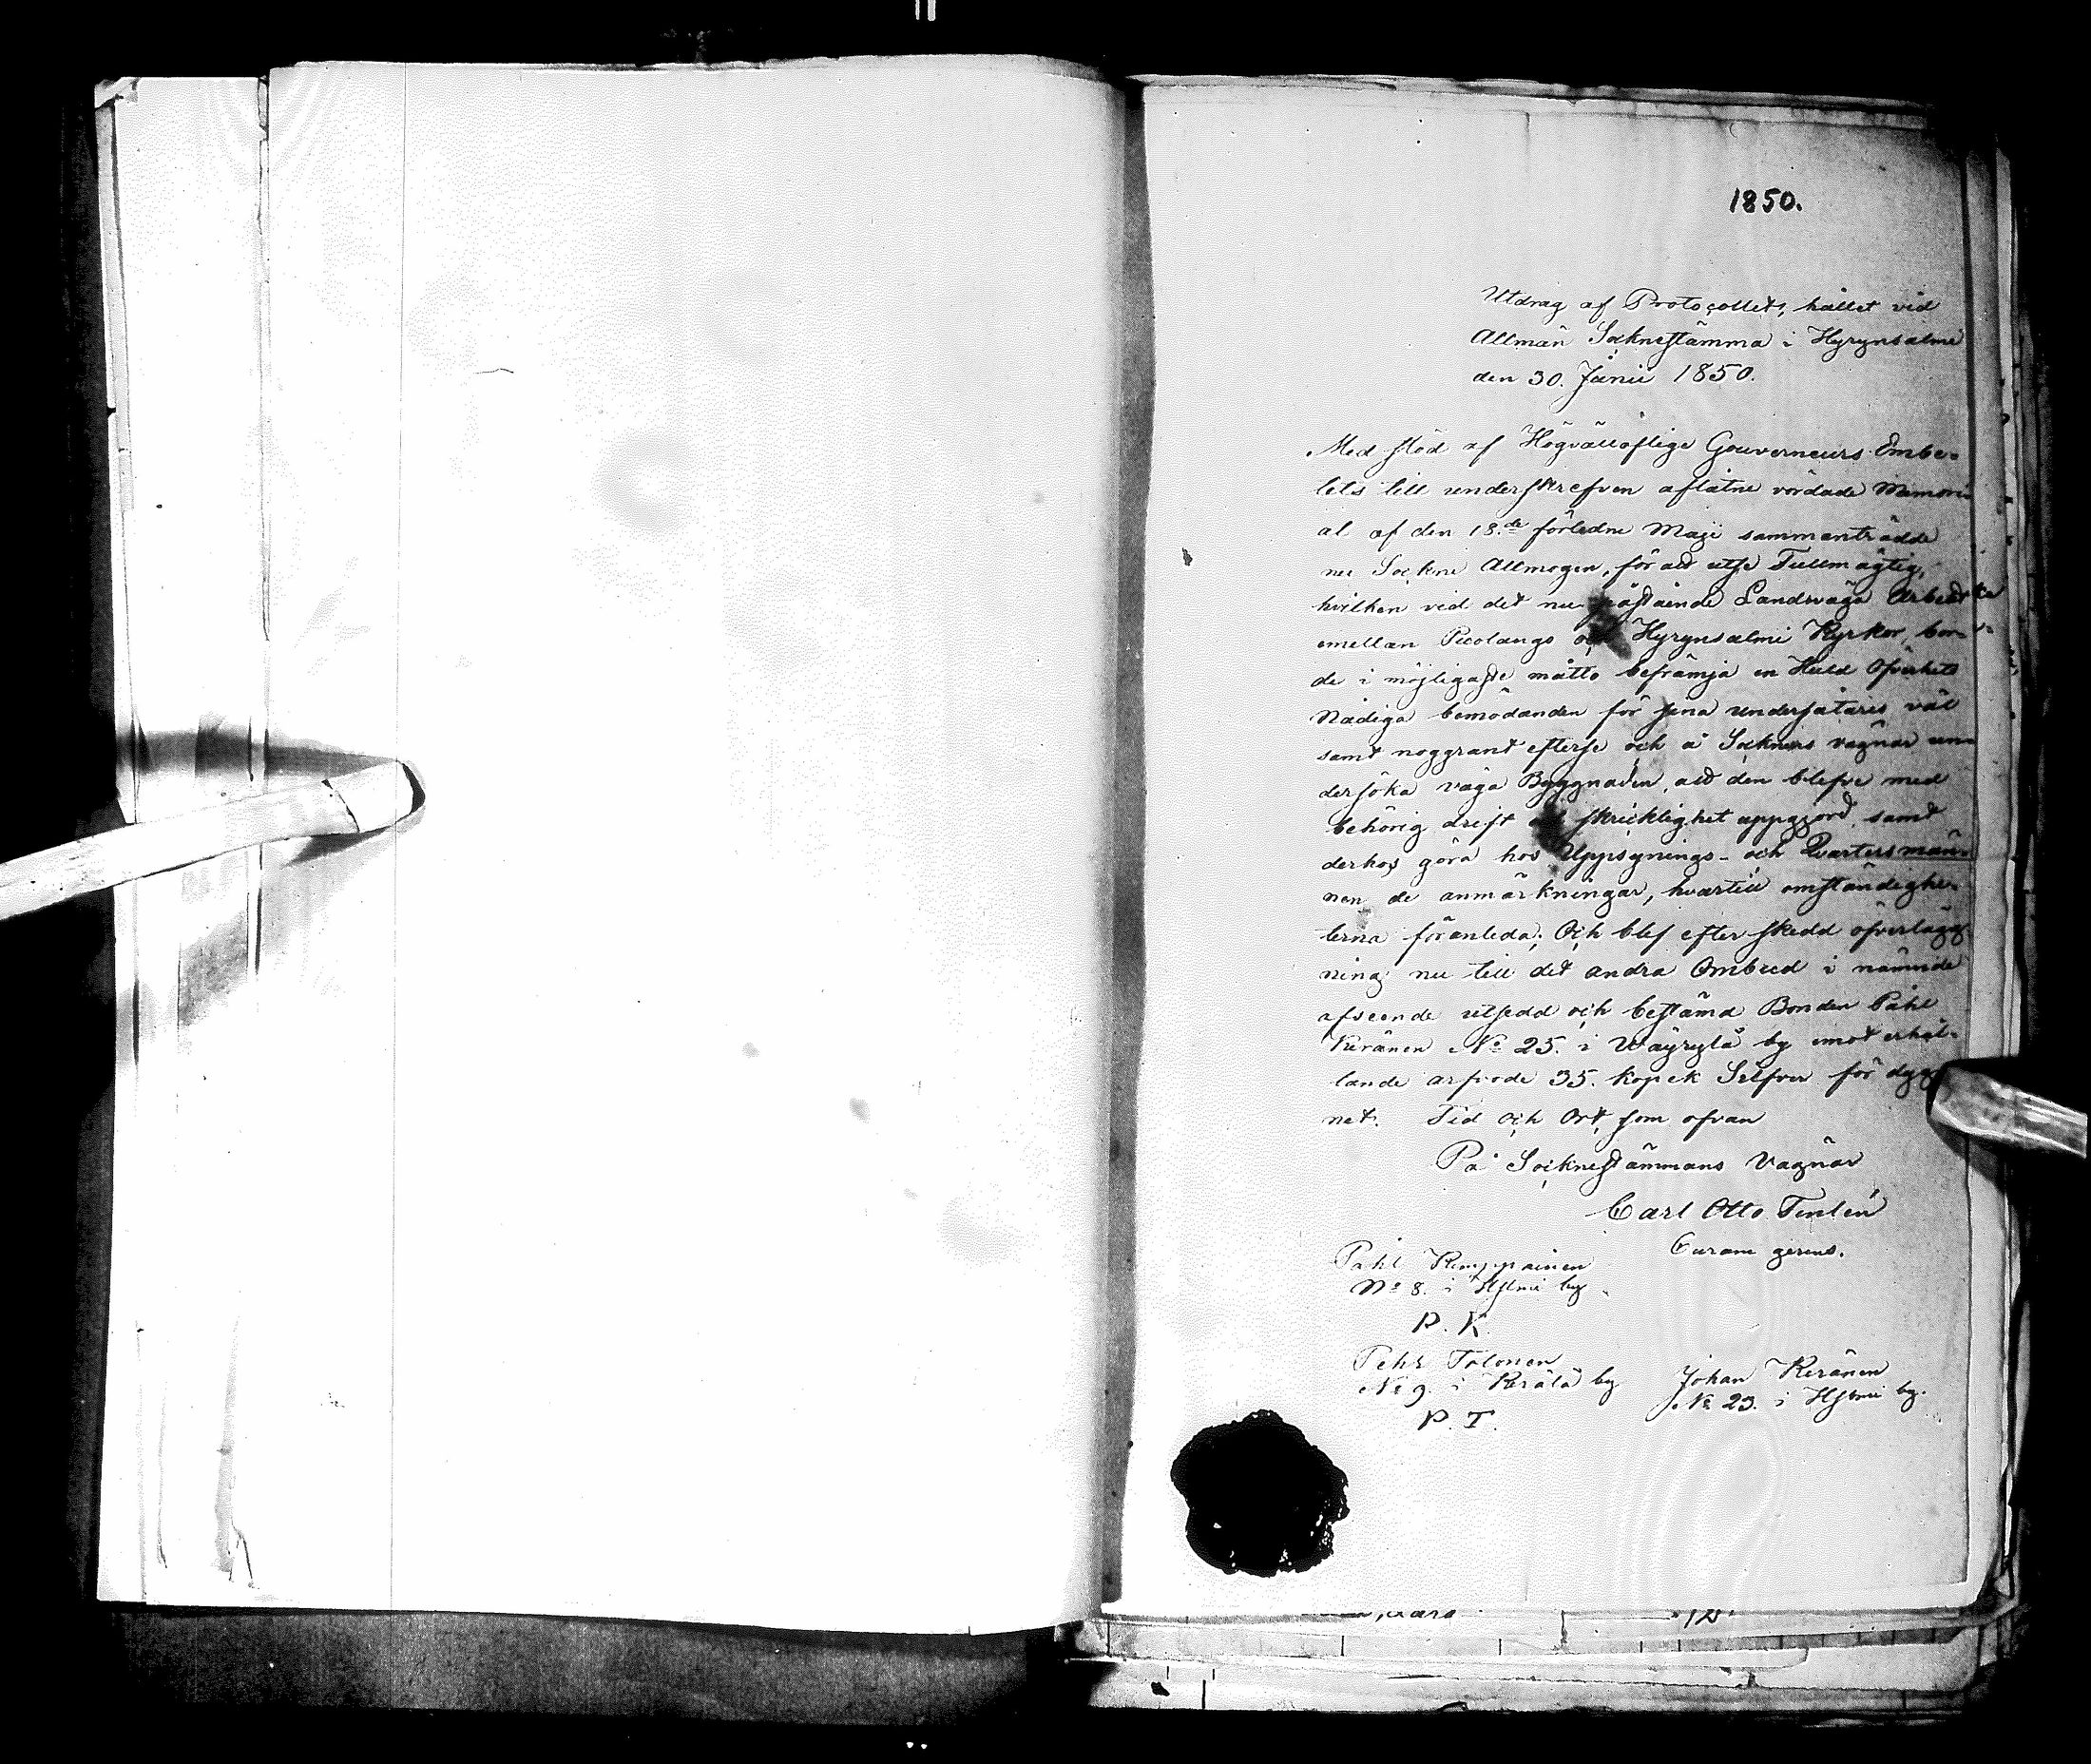 1850.
Utdrag af Protocollet, hållet vid
Allmän Sockneftämma i Hyrynsalmi
den 30. Junii 1850.
Med stöd af Högvällofliga Gouverneurs Embe-
tets till underskrefven aflåtne vördade Memori-
al af den 18.de förledne Maji sammanträdde
nu Sockne Allmogen, för att utse Fullmägtig,
hvilken vid det nu påstående Landsväga Arbetet
emellan Puolango och Hyrynsalmi Kyrkor, bor-
de i möjligaste måtto befrämja en Huld Öfverhets
Nådiga bemödanden för sina undersåtares väl
samt noggrant efterse och å Socknens vägnar un-
dersöka väga Byggnaden, att den blefve med
behörig drift och skicklighet uppgjord, samt
derhos göra hos Uppsynings- och Qvartersmän-
nen de anmärkningar, hvartill omständighe-
terna föranleda; Och blef efter skedd öfverlägg-
ning nu till det andra Ombud i nämnde
afseende utsedd och bestämd Bonden Påhl
Keränen No 25. i Wäyrylä by emot erhål-
lande arfvode 35. kopek Silfver för dyg-
net. Tid och Ort, som ofvan
På Socknestämmans vägnar
Carl Otto Tenlén
Curam gerens.
Påhl Kemppainen
No 8. i Hslmi by
P. K.
Pehr Tolonen
No 9. i Kerälä by
P. T.
Johan Keränen
No 23. i Hslmi by.